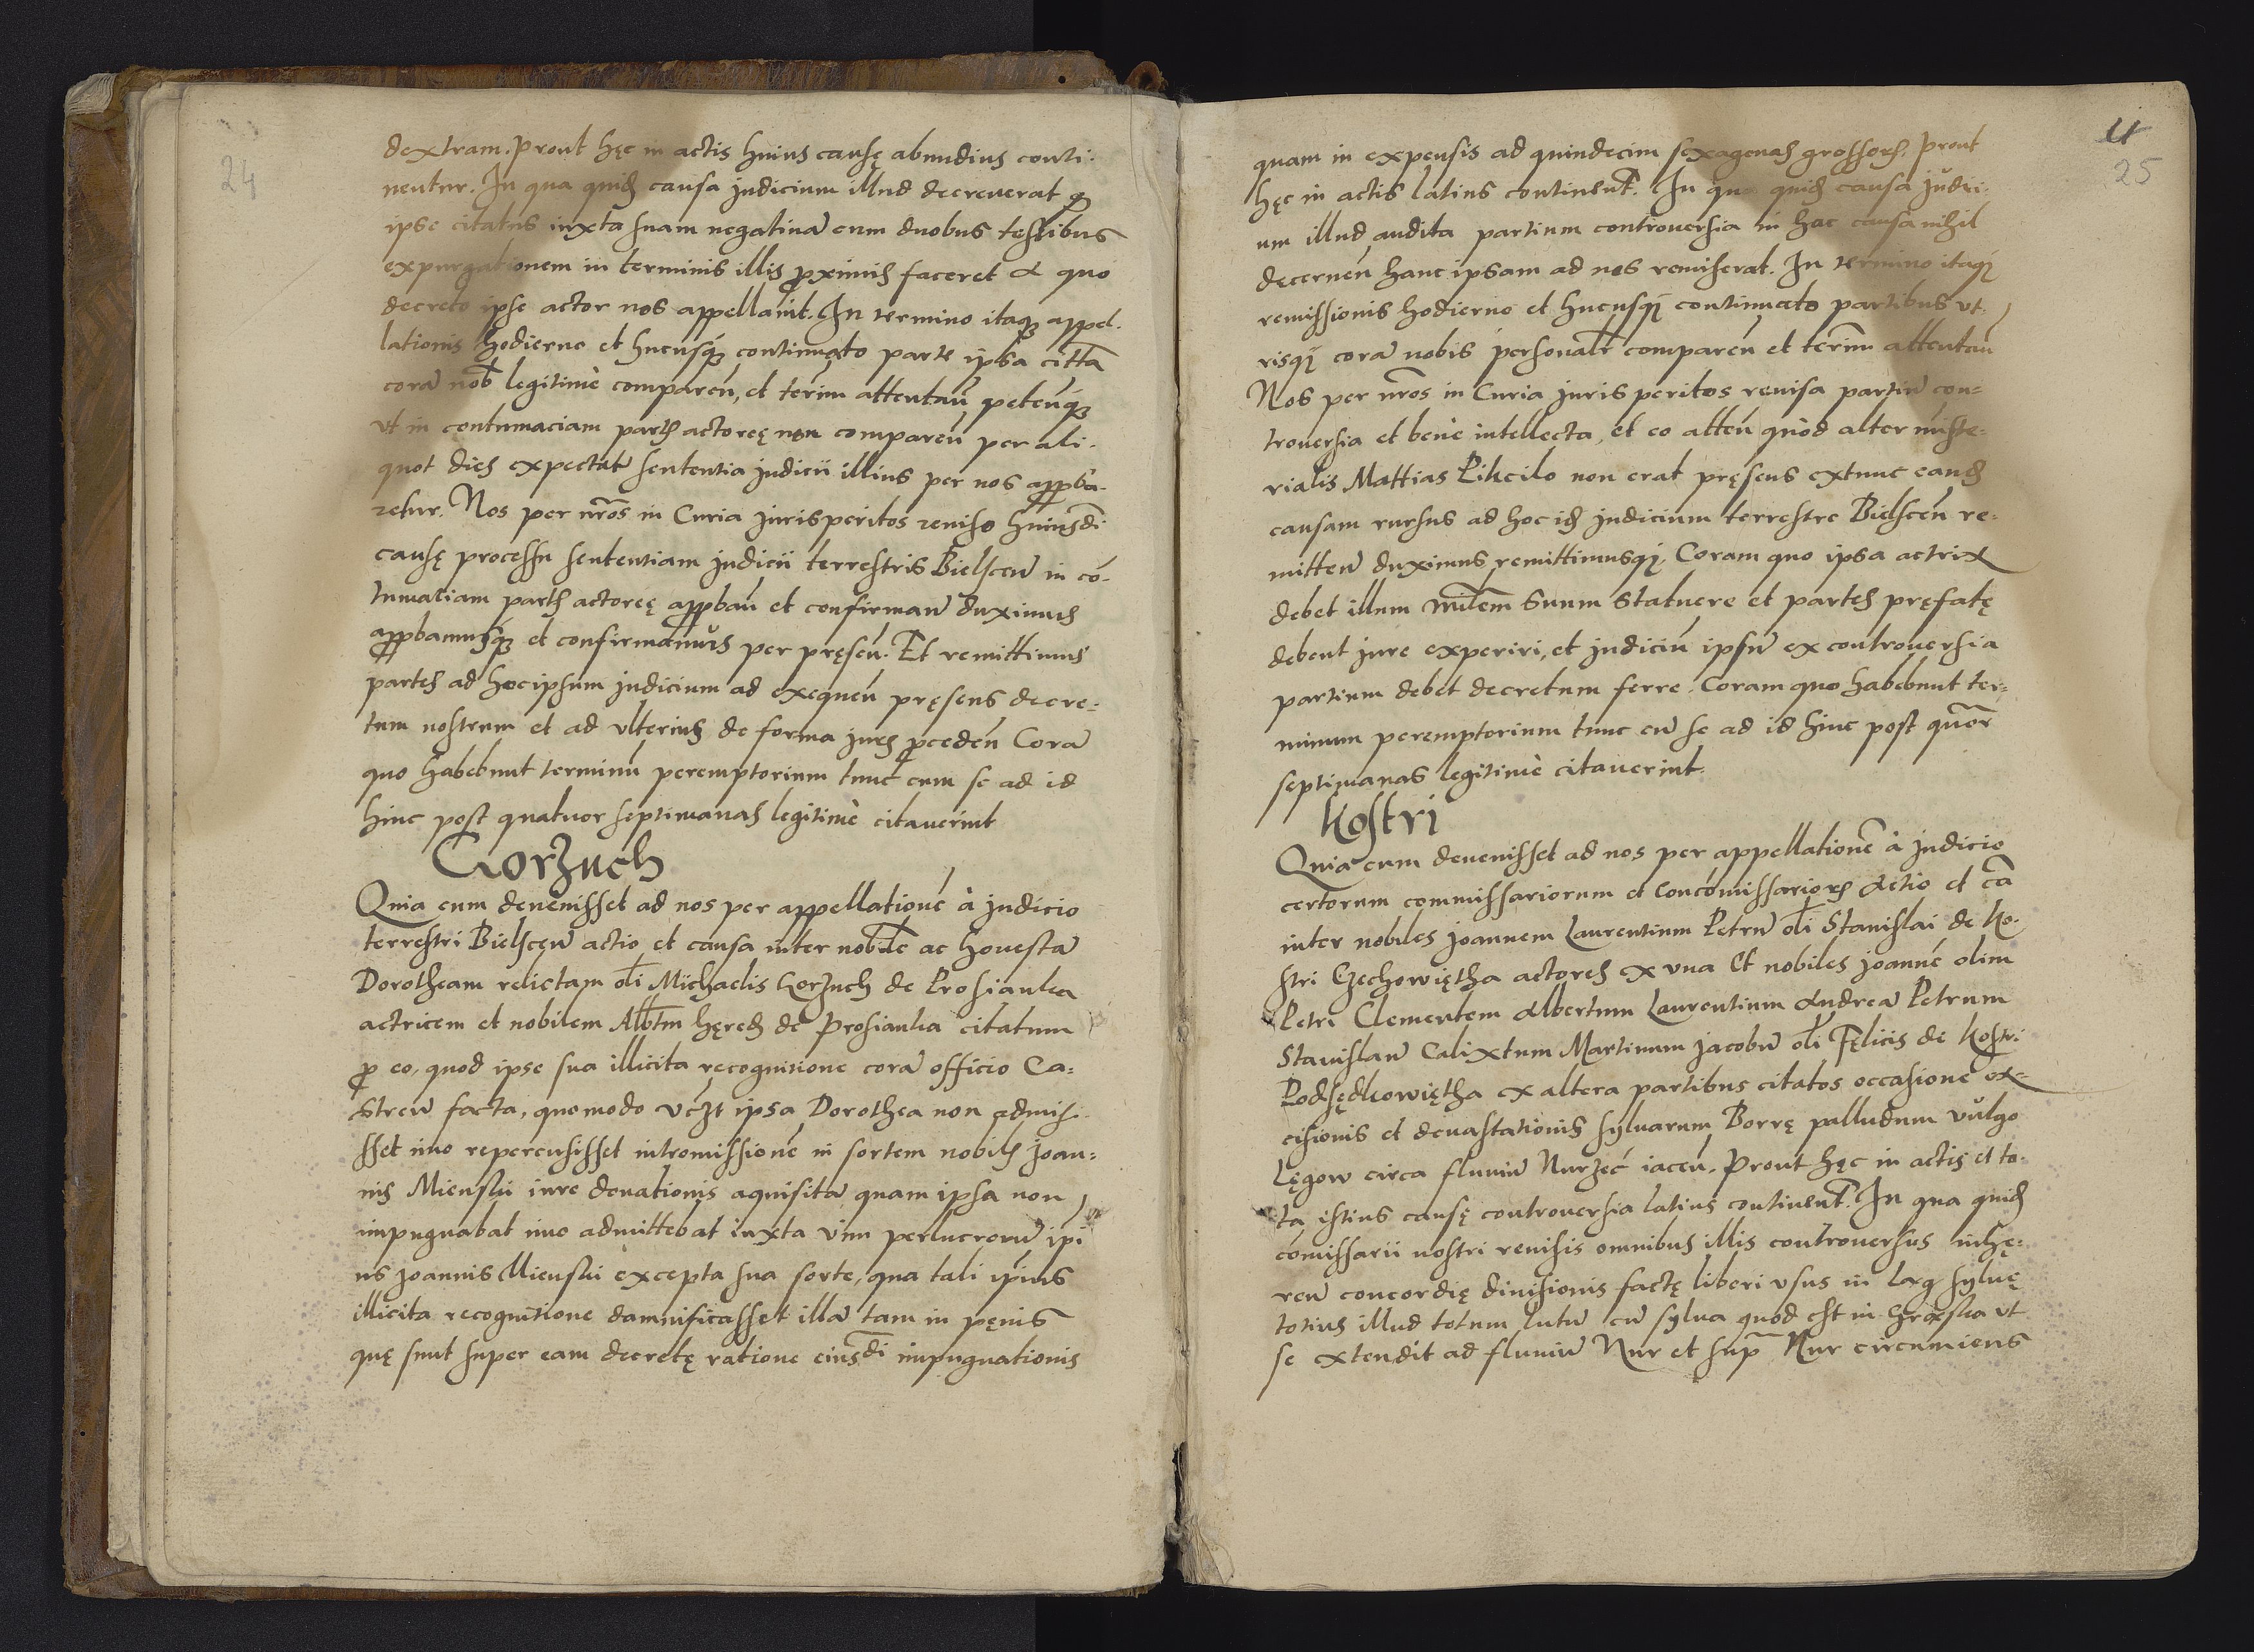 24
dextram. Prout hęc in actis huius causę abundius conti-
nentur. In qua quidẽ causa judicium illud decreverat qđ
ipse citatus iuxta suam negatiuã cum duobus testibus
expurgationem in terminis illis ꝓximis faceret A quo
decreto ipse actor nos appellauit. In termino itaqꝫ appel-
lationis hodierno et hucusqꝫ continuato parte ipsa citta
corã nob̃ legitimè compareñ, et term̃ attentañ peteñqꝫ
vt in contumaciam partis actoreę non compareñ per ali-
quot dies expectatę sententia judicii illius per nos apꝓba-
retur. Nos per nr̃os in Curia jurisperitos reuiso huiusdi
causę processu sententiam judicii terrestris Bielsceñ in cõ-
tumatiam partis actoreę apꝓbañ et confirmañ duximus
apꝓbamusqꝫ et confirmamus per pręseñ. Et remittimus
partes ad hoc ipsum judicium ad exequeñ pręsens decre-
tum nostrum et ad vlterius de forma juris ꝓcedeñ Corã
quo habebunt terminũ peremptorium tunc cum se ad id
hinc post quatuor septimanas legitimè citauerint
Gorzuch
Quia cum deuenisset ad nos per appellationẽ à judicio
terrestri Bielsceñ actio et causa inter nobilẽ ac honestã
Dorotheam relictam oli Michaelis Gorzuch de Prosianka
actricem et nobilem Albtm̃ hęredẽ de Prosianka citatum
ꝓ eo, quod ipse sua illicita recognitione corã officio Ca-
streñ facta, quomodo vczt ipsa Dorothea non admis-
sset imo repercusisset intromissionẽ in sortem nobilis Joan-
nis Mienski iure donationis aquisitã quam ipsa non
impugnabat imo admittebat iuxta vim perlucrorũ ipi
us Joannis Mienski excepta sua sorte, qua tali ipius
illicita recognitione damnificasset illã tam in pęnis
quę sunt super eam decretę ratione eiusdi impugnationis
25
quam in expensis ad quindecim sexagenas grossorꝫ. Prout
hęc in actis latius continent̃. In qua quidẽ causa judici-
um illud audita partium controuersia in hac causa nihil
decerneñ hanc ipsam ad nos remiserat. In termino itaqꝫ
remissionis hodierno et hucusqꝫ continuato partibus vt-
risqꝫ corã nobis personalr̃ compareñ et term̃ attentañ
Nos per nr̃os in Curia juris peritos reuisa partiũ con-
trouersia et bene intellecta, et eo atteñ quòd alter niste-
rialis Mattias Pikcilo non erat pręsens extunc eandẽ
causam rursus ad hoc idẽ judicium terrestre Bielsceñ re-
mitteñ duximus remittimusqꝫ. Coram quo ipsa actrix
debet illum milem̃ suum statuere et partes pręfatę
debent jure experiri, et judiciũ ipsũ ex controuersia
partium debet decretum ferre. Coram quo habebunt ter-
minum peremptorium tunc cũ se ad id hinc post quõr
septimanas legitimè citauerint.
Kostri
Quia cum deuenisset ad nos per appellationẽ à judicio
certorum commissariorum et Concõmissariorꝫ Actio et cã
inter nobiles Joannem Laurentium Petrũ oli Stanislai de Ko-
stri Czechowiętha actores ex vna Et nobiles Joannẽ olim
Petri Clementem Albertum Laurentium Andreã Petrum
Stanislaũ Calixtum Martinum Jacobũ oli Fęlicis de Kostri
Podsędkowiętha ex altera partibus citatos occasione ex-
cisionis et deuastationis syluarum Borrę palludum vulgo
Lęgow circa fluuiũ Nurzec iaceñ. Prout hęc in actis et to-
ta istius causę controuersia latius continent̃. In qua quidẽ
cõmissarii nostri reuisis omnibus illis controuersus inhę-
reñ concordię diuisionis factę liberi vsus in Lag syluę
totius illud totum lutũ cũ sylua quod est in
vt
se extendit ad fluuiũ Nur et supr̃ Nur circumiens